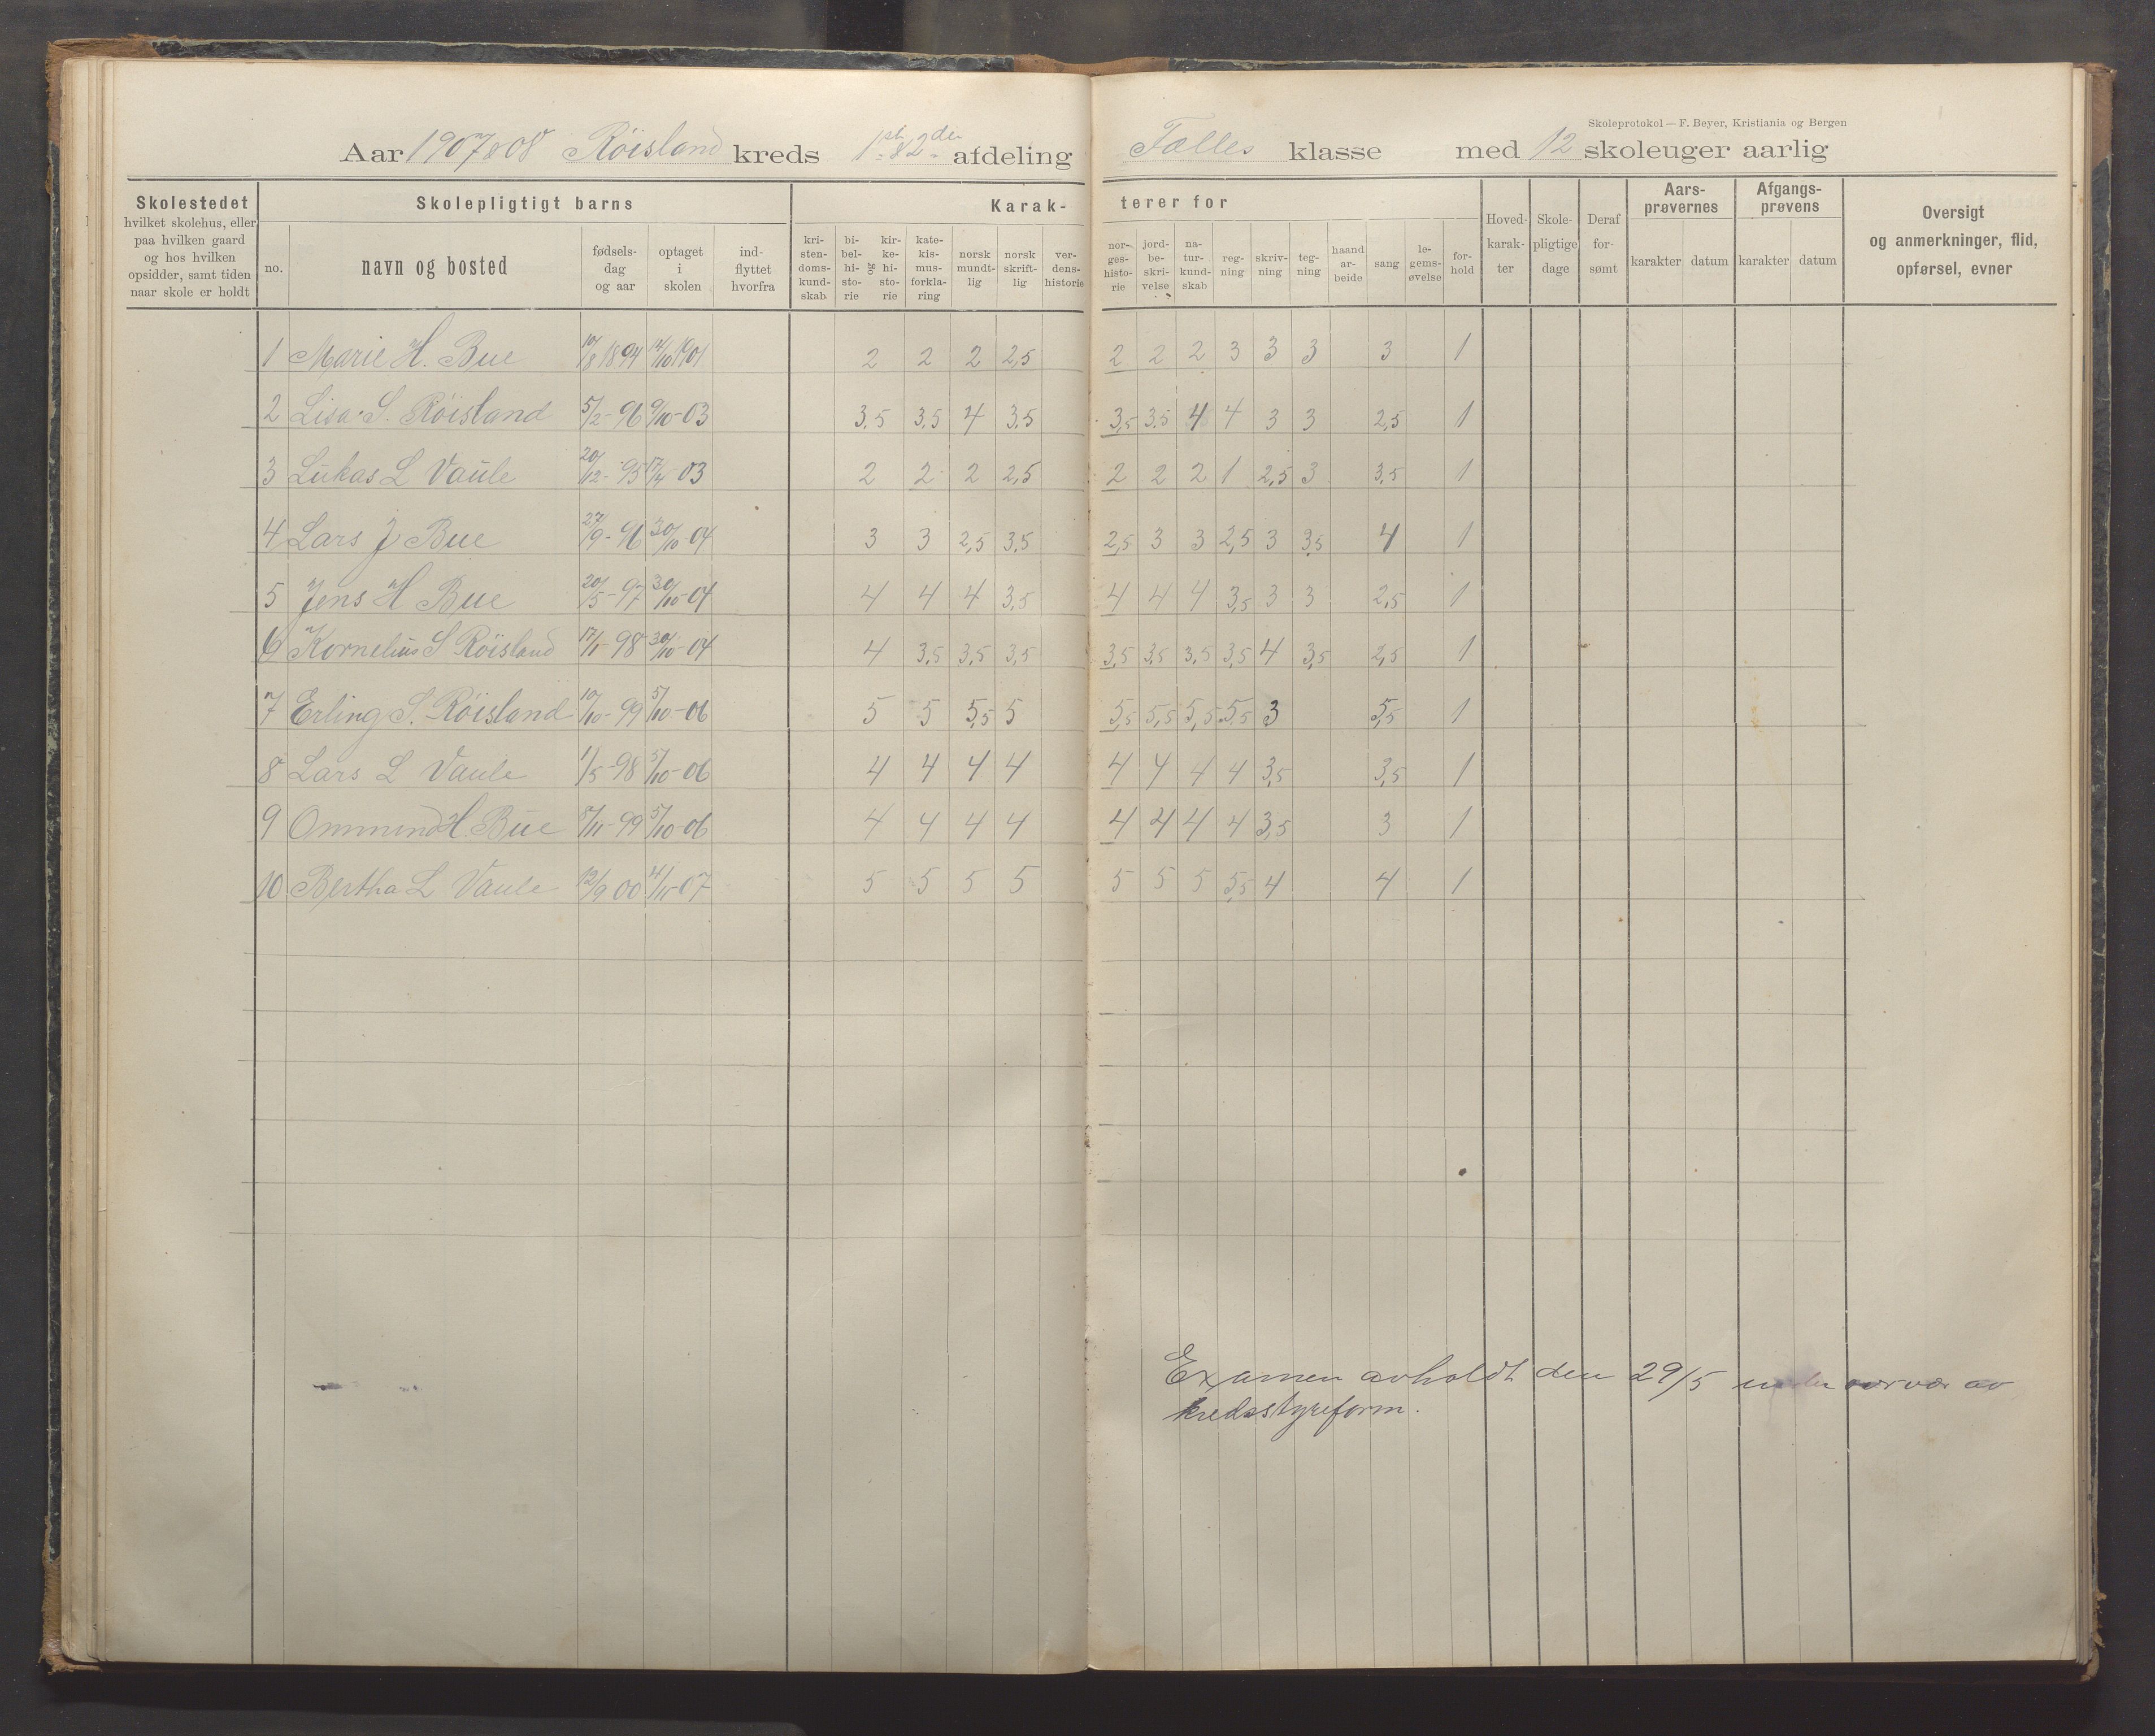 Skoleprotokol — F. Beyer, Kristiania og Bergen
Aar 1907 & 08 Röisland kreds 1ste & 2den afdeling Fælles klasse med 12 skoleuger aarlig
Skolestedet hvilket skolehus, eller paa hvilken gaard og hos hvilken opsidder, samt tiden naar skole er holdt
Skolepligtigt barns
Karakterer for
no. navn og bosted fødselsdag og aar optaget i skolen indflyttet hvorfra
kristendomskundskab bibelhistorie og kirkehistorie katekismusforklaring norsk mundtlig norsk skriftlig verdenshistorie
norgeshistorie jordbeskrivelse naturkundskab regning skrivning tegning haandarbeide sang legemsøvelse forhold
Hovedkarakter Skolepligtige dage Deraf forsømt
Aarsprøvernes karakter datum
Afgangsprøvens karakter datum
Oversigt og anmerkninger, flid, opførsel, evner
1 Marie H. Bue 10/8 1894 14/10 1901 2 2 2 2,5 2 2 2 3 3 3 3 1
2 Lisa S. Röisland 5/2-96 9/10-03 3,5 3,5 4 3,5 3,5 3,5 4 4 3 3 2,5 1
3 Lukas L Vaule 20/12-95 03 2 2 2 2,5 2 2 2 1 2,5 3 3,5 1
4 Lars J Bue 27/9-96 30/10 04 3 3 2,5 3,5 2,5 3 3 2,5 3 3,5 4 1
5 Jens H Bue 20/5-97 30/10-04 4 4 4 3,5 4 4 4 3,5 3 3 2,5 1
6 Kornelius S Röisland 17/1-98 30/10-04 4 3,5 3,5 3,5 3,5 3,5 3,5 3,5 4 3,5 2,5 1
7 Erling S. Röisland 10/10-99 5/10-06 5 5 5,5 5 5,5 5,5 5,5 5,5 3 5,5 1
8 Lars L Vaule 1/5-98 5/10-06 4 4 4 4 4 4 4 4 3,5 3,5 1
9 Ommund H. Bue 8/11-99 5/10-06 4 4 4 4 4 4 4 4 3,5 3 1
10 Bertha L Vaule 12/9 00 4/11-07 5 5 5 5 5 5 5 5,5 4 4 1
Examen avholdt den 29/5 under av
kredsstyreform.